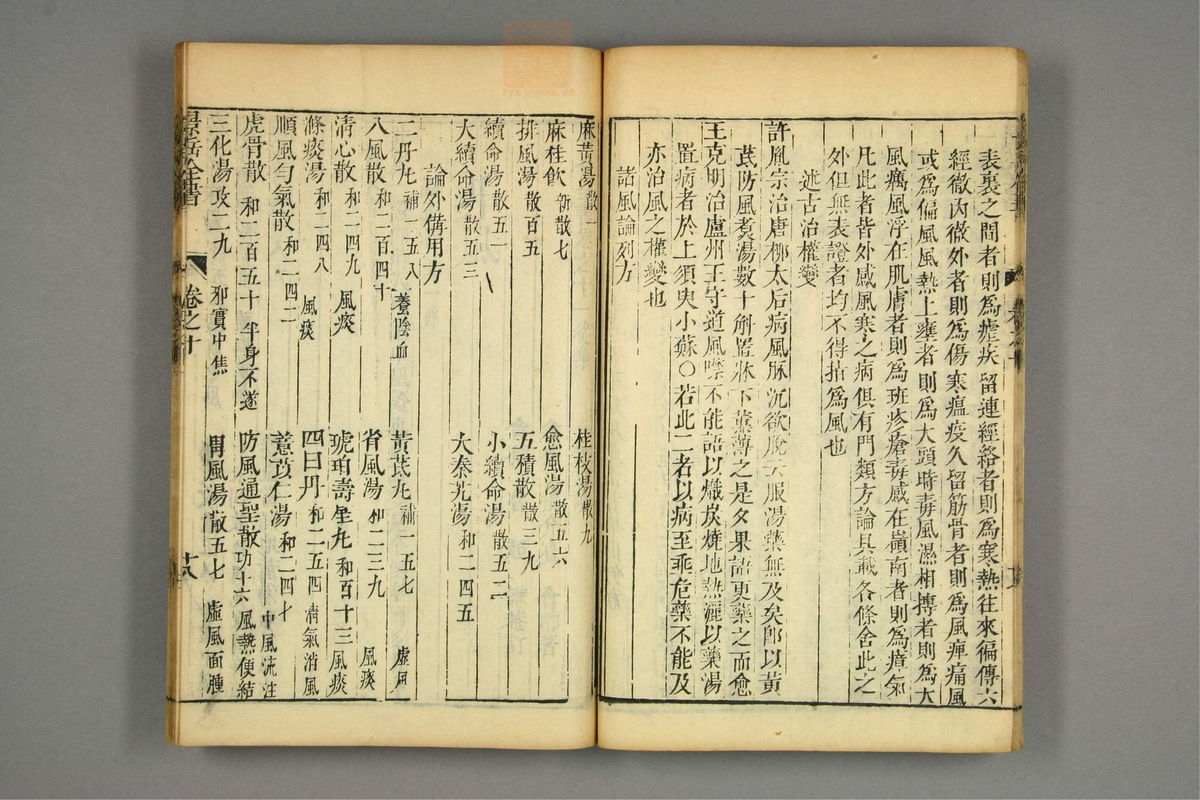 表裏之間者則爲瘧疾留連經絡者則爲寒熱往來徧傳六
經微內微外者則爲傷寒瘟疫久留筋骨者則爲風痺痛風
或爲偏風風熱上壅者則爲大頭時毒風濕相搏者則爲大
風癘風浮在肌膚者則爲班疹瘡毒感在嶺南者則爲瘴氣
凡此者皆外感風寒之病俱有門類方論具載各條舍此之
外但無表證者均不得指爲風也
述古治權變
許胤宗治唐柳太后病風脉沉欲脫六服湯藥無及矣卽以黃
芪防風煑湯數十斛置牀下薰蒸之是夕果語更藥之而愈
王克明治廬州王守道風噤不能語以熾炭燒地熱灑以藥湯
置病者於上須臾小蘇〇若此二者以病至垂危藥不能及
亦治風之權變也
諸風論列方
麻黃湯散一 桂枝湯散九
麻桂飲新散七 愈風湯散五六
排風湯散百五 五積散散三九
續命湯散五一 小續命湯散五二
大續命湯散五三 大秦艽湯和二四五
論外備用方
二丹丸補一五八 養陰血 黃芪丸補一五七 虛風
八風散和二百四十 省風湯和二三九 風痰
清心散和二四九 風痰 琥珀壽星丸和百十三 風痰
滌痰湯和二四八 風痰 四白丹和二五四 清氣消風
順風勻氣散和二四二 薏苡仁湯和二四七 中風流注
虎骨散和二百五十 半身不遂 防風通聖散功十六 風熱便結
三化湯攻二九 邪實中焦 胃風湯散五七 虛風面腫
景岳全書 卷之十 十八